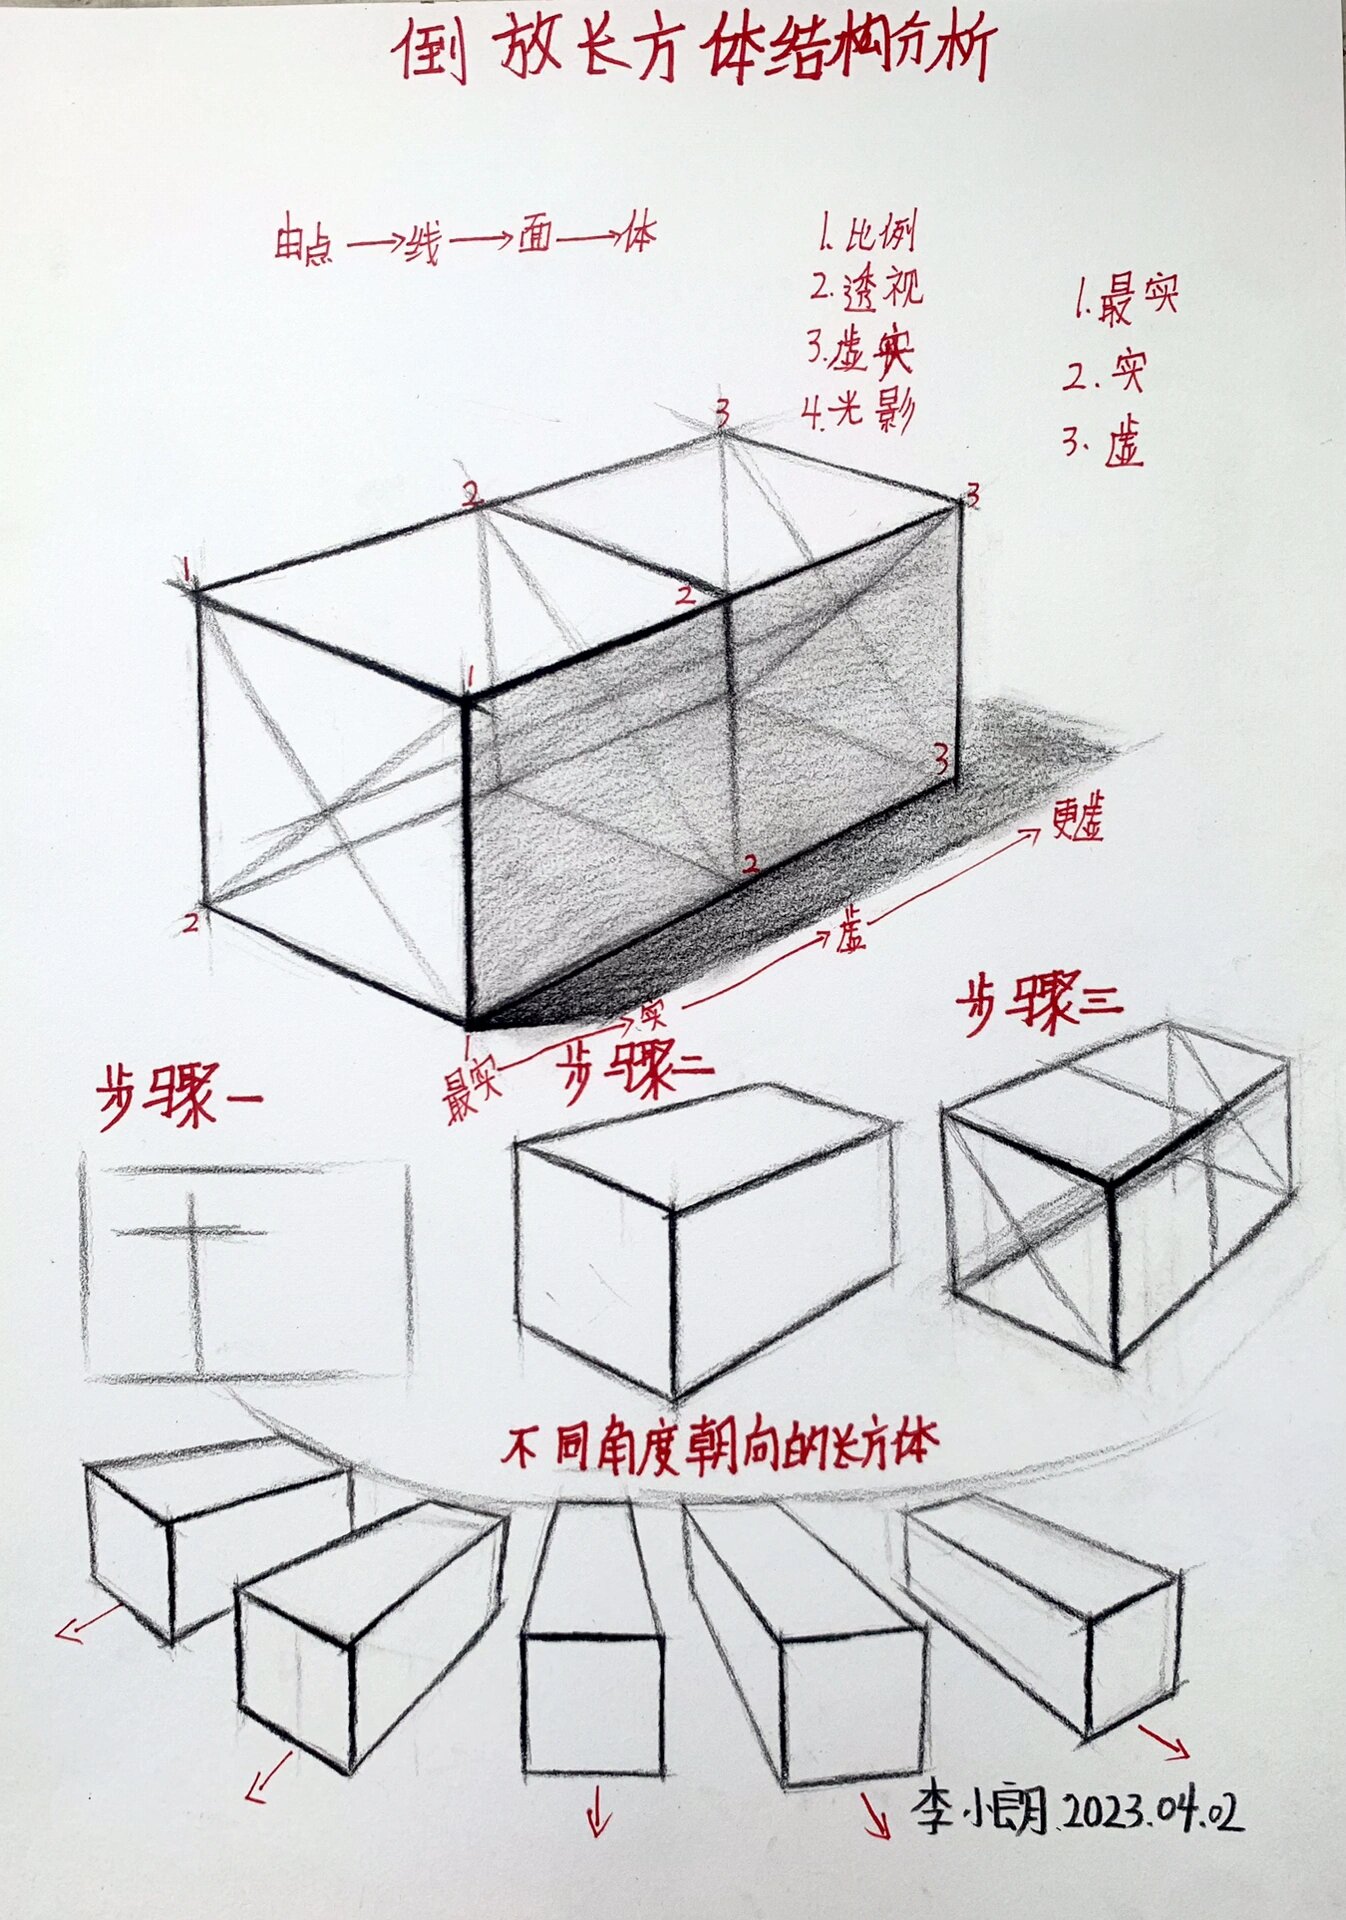 倒放长方体结构分析
由点→线→面→体
1.比例
2.透视
3.虚实
4.光影
1.最实
2.实
3.虚
3
2
3
1
2
1
3
2
2
1
最实→实→虚→更虚
步骤一
步骤二
步骤三
不同角度朝向的长方体
李小朗.2023.04.02